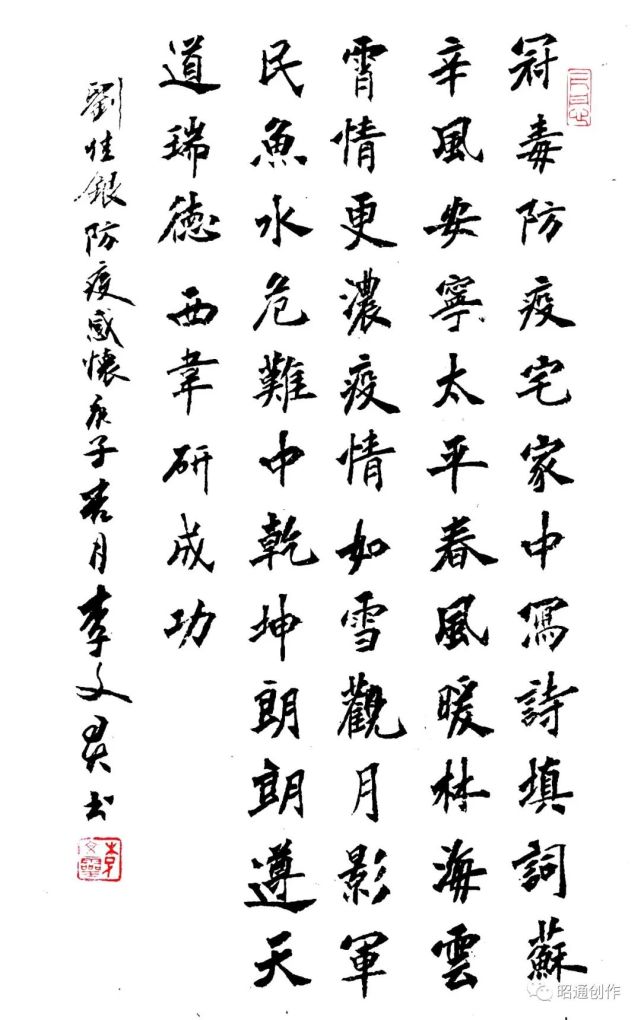 冠毒防疫宅家中寫詩填詞蘇
辛風安寧太平春風暖林海雲
霄情更濃疫情如雪觀月影軍
民魚水危難中乾坤朗朗遵天
道瑞德西韋研成功
劉佳銀防疫感懷庚子春月李文昊书
昭通创作